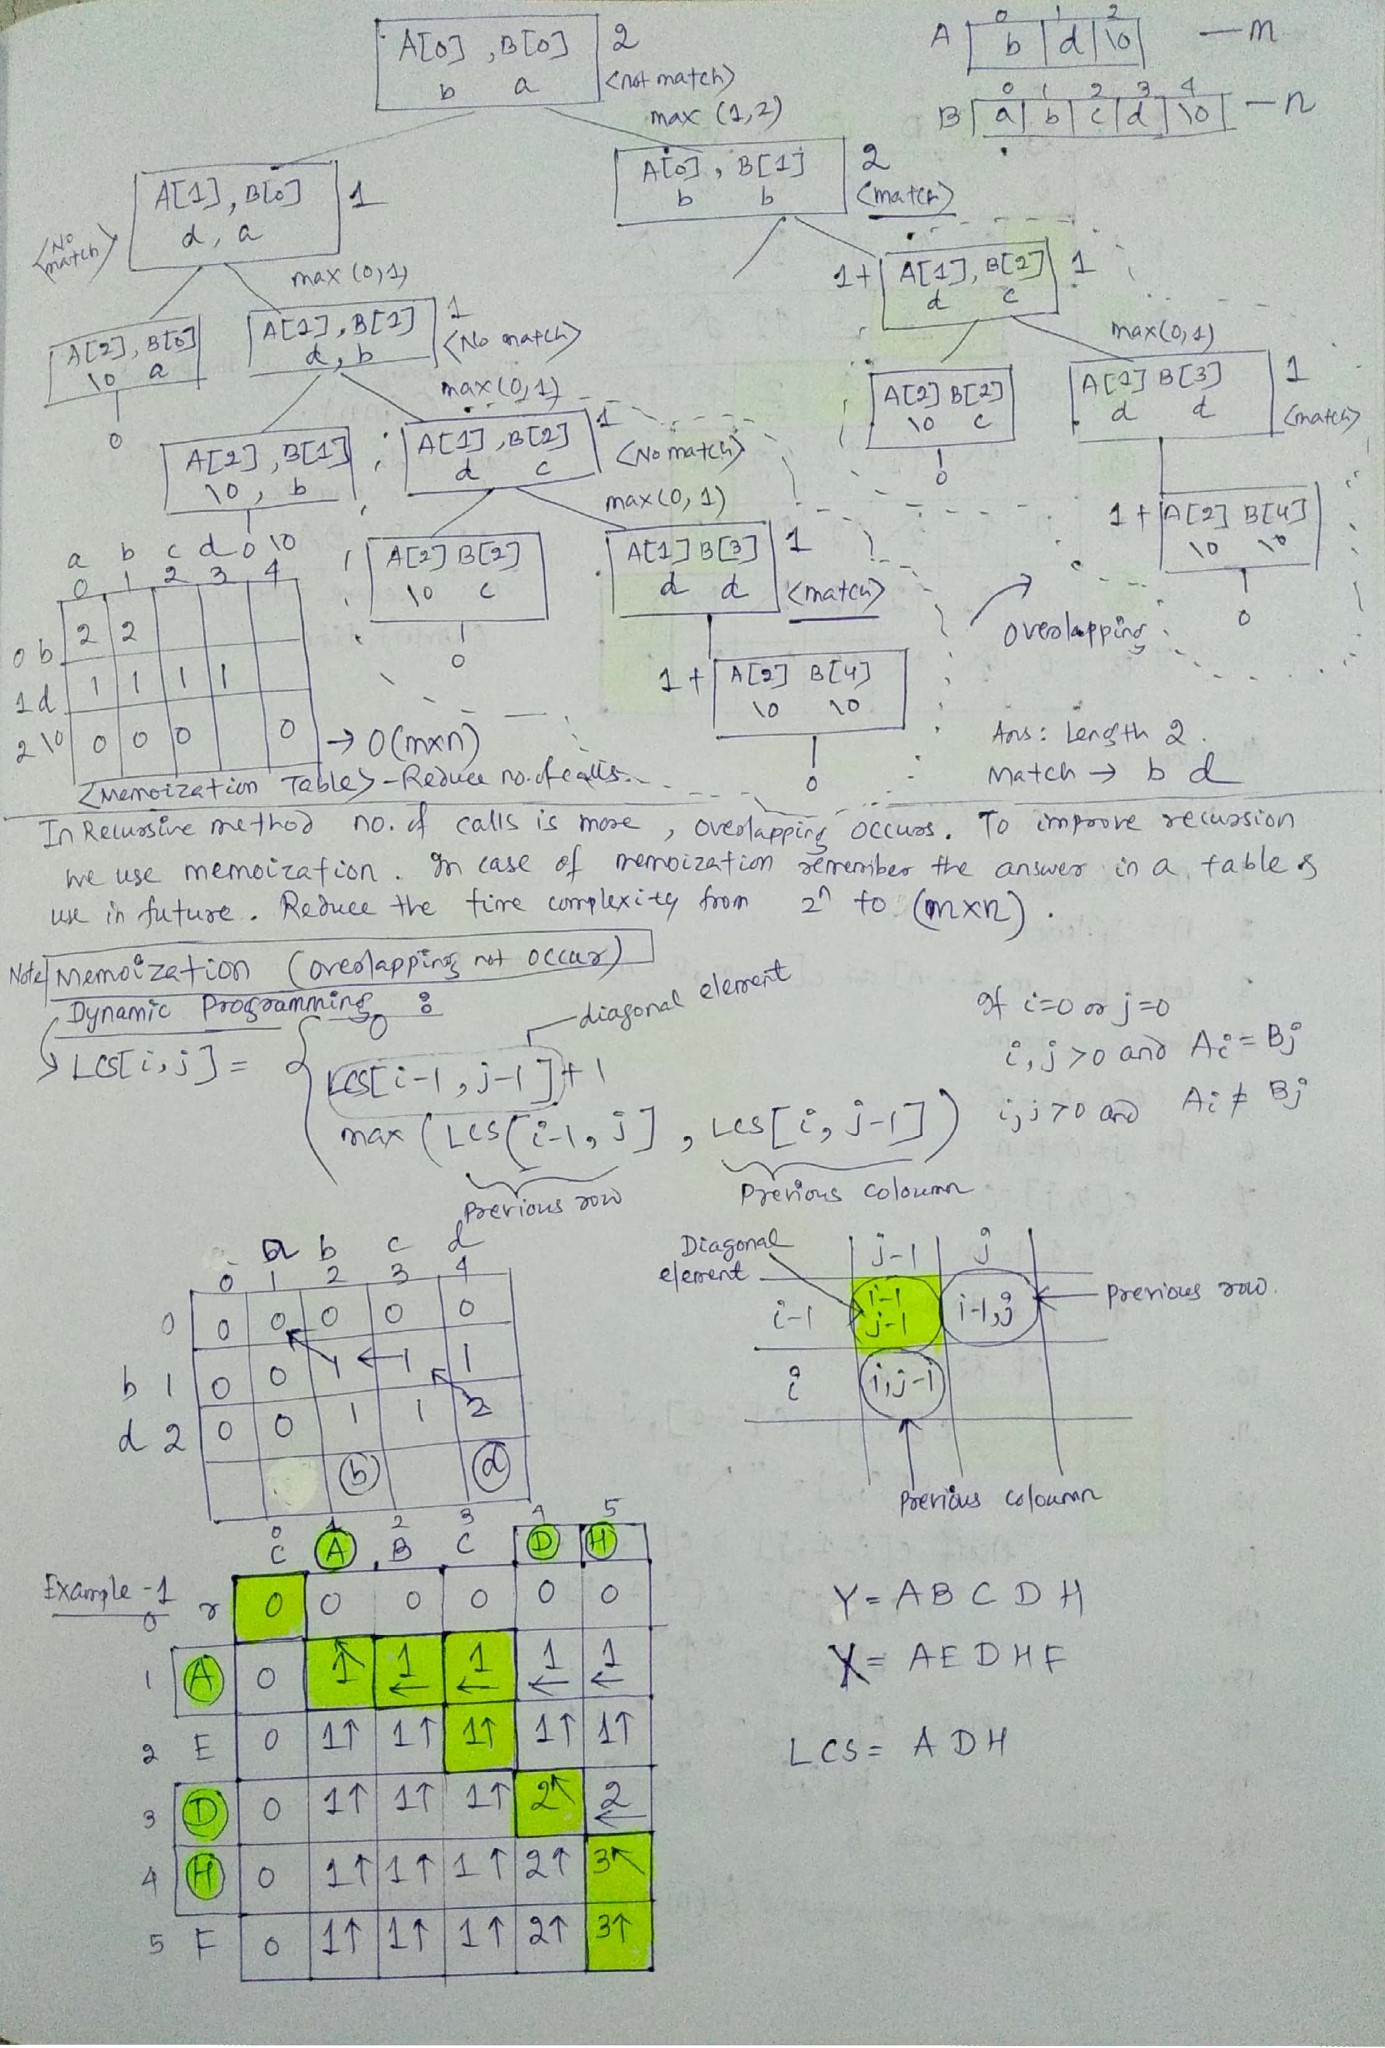 A[0] , B[0] 2
b a <not match>
max (1,2)
0 1 2
A b d \0 — m
0 1 2 3 4
B a b c d \0 — n
A[1], B[0] 1
d, a
<No match>
max (0,1)
A[0] , B[1] 2
b b <match>
1+ A[1], B[2] 1
d c
max(0,1)
A[2], B[0]
\0 a
0
A[1], B[1] 1
d, b <No match>
max(0,1)
A[2] B[2]
\0 c
0
A[1] B[3] 1
d d <match>
A[2] , B[1]
\0 , b
0
A[1] , B[2] 1
d c <No match>
max(0, 1)
1 + A[2] B[4]
\0 \0
0
A[2] B[2]
\0 c
0
A[1] B[3] 1
d d <match>
overlapping
1+ A[2] B[4]
\0 \0
0
a b c d \0
0 1 2 3 4
0 b 2 2
1 d 1 1 1 1
2 \0 0 0 0 0 → O(m×n)
<Memoization Table> - Reduce no. of calls.
Ans: Length 2.
Match → b d
In Recursive method no. of calls is more , overlapping occurs. To improve recursion
we use memoization. In case of memoization remember the answer in a table &
use in future. Reduce the time complexity from 2ⁿ to (m×n).
Note/ Memoization (overlapping not occur)
Dynamic Programming :
diagonal element
LCS[i,j] = { 0 If i=0 or j=0
LCS[i-1, j-1] + 1 i, j >0 and Ai = Bj
max (LCS[i-1, j] , LCS[i, j-1]) i,j >0 and Ai ≠ Bj
Previous row Previous coloumn
a b c d
0 1 2 3 4
0 0 0 0 0 0
b 1 0 0 1 ← 1 1
d 2 0 0 1 1 2
b d
Diagonal element
j-1 j
i-1 i-1 j-1 i-1,j Previous row.
i i,j-1
Previous coloumn
Example-1
0 1 2 3 4 5
C A B C D H
0 r 0 0 0 0 0 0
1 A 0 1↖ 1← 1← 1← 1←
2 E 0 1↑ 1↑ 1↑ 1↑ 1↑
3 D 0 1↑ 1↑ 1↑ 2↖ 2←
4 H 0 1↑ 1↑ 1↑ 2↑ 3↖
5 F 0 1↑ 1↑ 1↑ 2↑ 3↑
Y = A B C D H
X = A E D H F
LCS = A D H